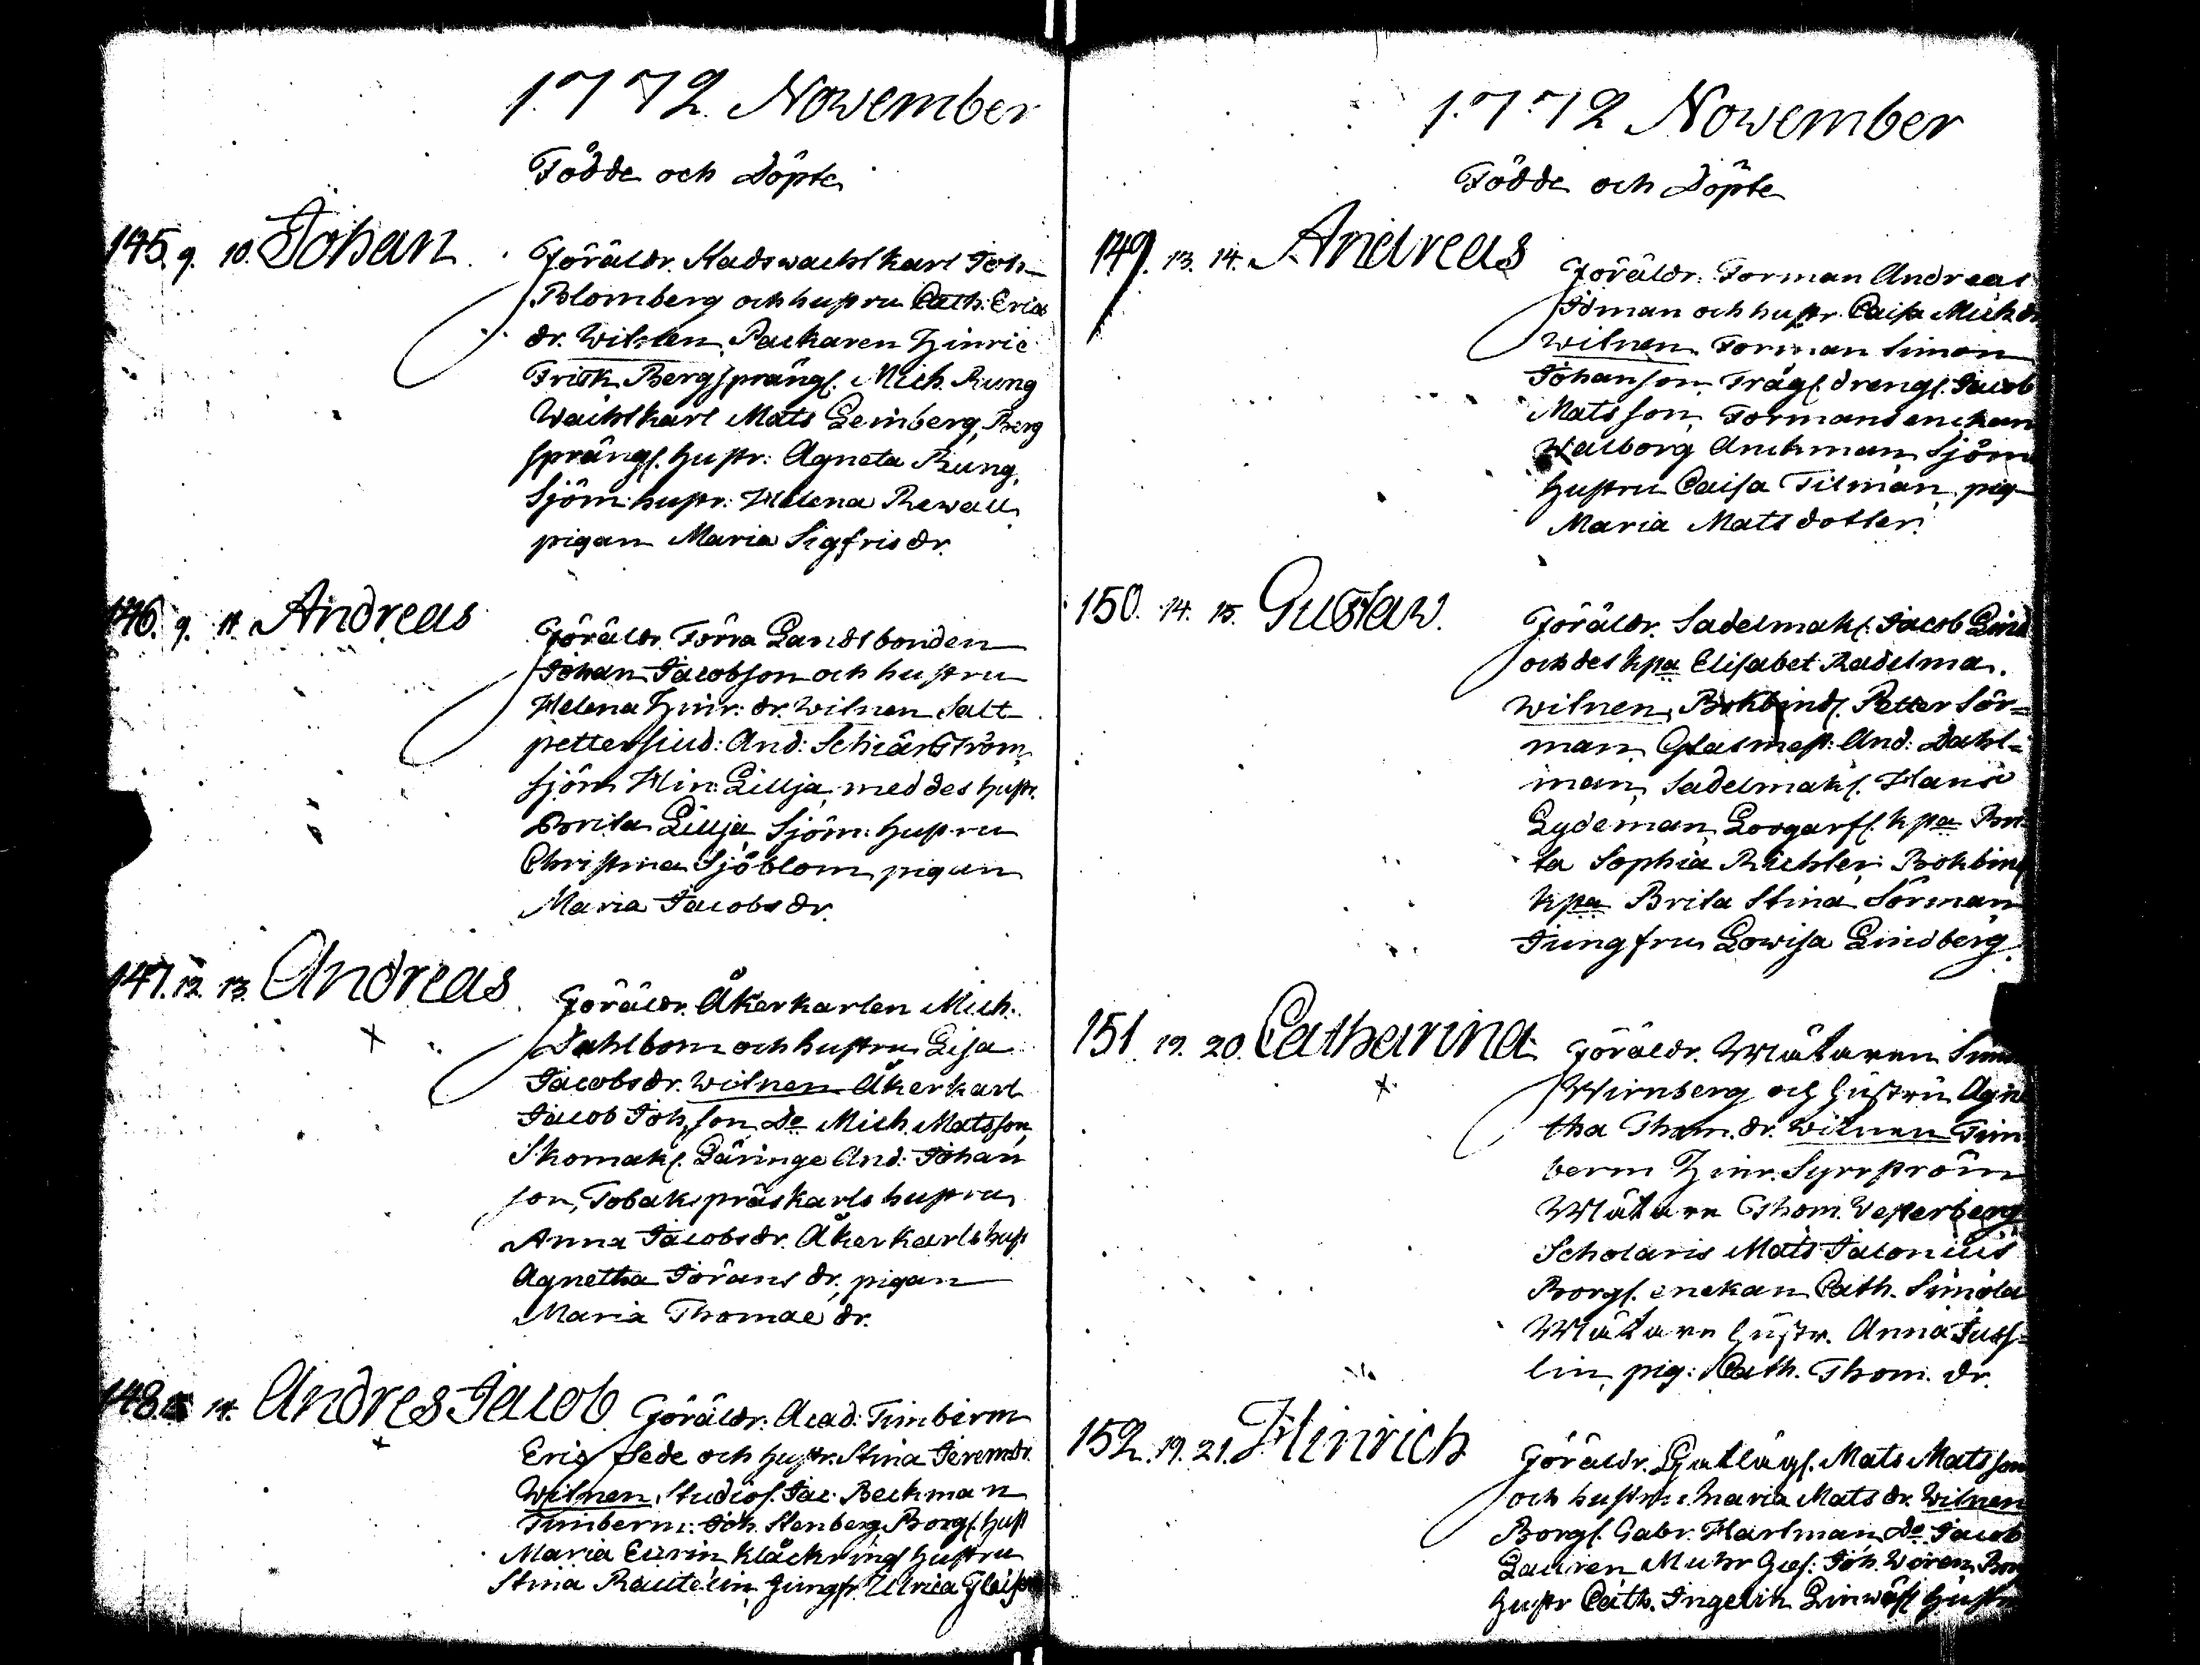 1772. November
Födde och Döpte
145. 9. 10. Johan. Föräldr. Stadswachtkarl Joh
Blomberg och hustru Cath: Erics
dr. Witnen, Packaren Hinric
Frisk Bergsprängs. Mich. Rung
Wachtkarl Mats Leinberg, Berg
sprängs. hustr: Agneta Rung,
Sjöm: hustr: Helena Rewall
pigan Maria Sigfrisdr.
146. 9. 11. Andreas Föräldr. Förra Landsbonden
Johan Jacobson och hustru
Helena Hinr: dr. Witnen Salt
pettersiud: And: Schiärström
Sjöm Hin: Lillja med des hustr.
Brita Lillja, Sjöm: hustru
Christina Sjöblom pigan
Maria Jacobsdr.
147. 12. 13. Andreas Föräldr. Åkerkarlen Mich.
Dahlbom och hustru Lisa
Jacobsdr. Witnen Åkerkarl
Jacob Johsson, Do Mich. Matsson,
Skomaks. Läringe And: Johan
son, Tobakspräskarls hustru
Anna Jacobsdr. Åkerkarls hust
Agnetha Jörans dr, pigan
Maria Thomae dr.
148. 14. Andres Jacob Föräldr: Acad: Timberm
Eric Sede och hustr. Stina Jeremdr.
Witnen, Studios. Jac: Beckman
Timberm: Joh. Stenberg, Borgs. hust
Maria Eurin Kläckrings hustru
Stina Rautelin, Jungfr. Ulrica
1772 November
Födde och Döpte
149. 13. 14. Andreas Föräldr: Forman Andreas
Idman och hustr. Caisa Mich dr
Witnen Forman Simon
Johanson, Trägs. drengs. Jacob
Matsson, Formansenckan
Walborg Anckman, Sjöm
hustru Caisa Tilman, pig
Maria Matsdotter.
150. 14. 15. Gustaw. Föräldr. Sadelmaks. Jacob Lind
och des k:a Elisabet Radelma.
Witnen, Bokbinds. Petter Sör=
man, Glasmest: And: Dahl=
man, Sadelmaks. Hans
Lydeman, Loogarfs. k:a Bri
ta Sophia Richter, Bokbinds
k:a Brita Stina Sörman
Jungfru Lowisa Lindberg.
151. 19. 20. Catharina Föräldr. Mätaren Sim
Wirnberg och hustru Agne
tha Thom. dr. Witnen Tim
berm Hinr. Syrström
Mätare Thom. Westerberg
Scholaris Mats Jaconius
Borgs. enckan Cath. Simola
Mätare hustr. Anna Juss=
lin, pig: Cath. Thom. dr.
152. 19. 21. Hinrich Föräldr. Mats Matsson
och hustru Maria Mats dr. Witnen
Borgs. Gabr. Hartman, Do Jacob
Lauren Mur Ges: Joh. Woren, Bor
hustr Cath. Ingelin Linwäfs hustr